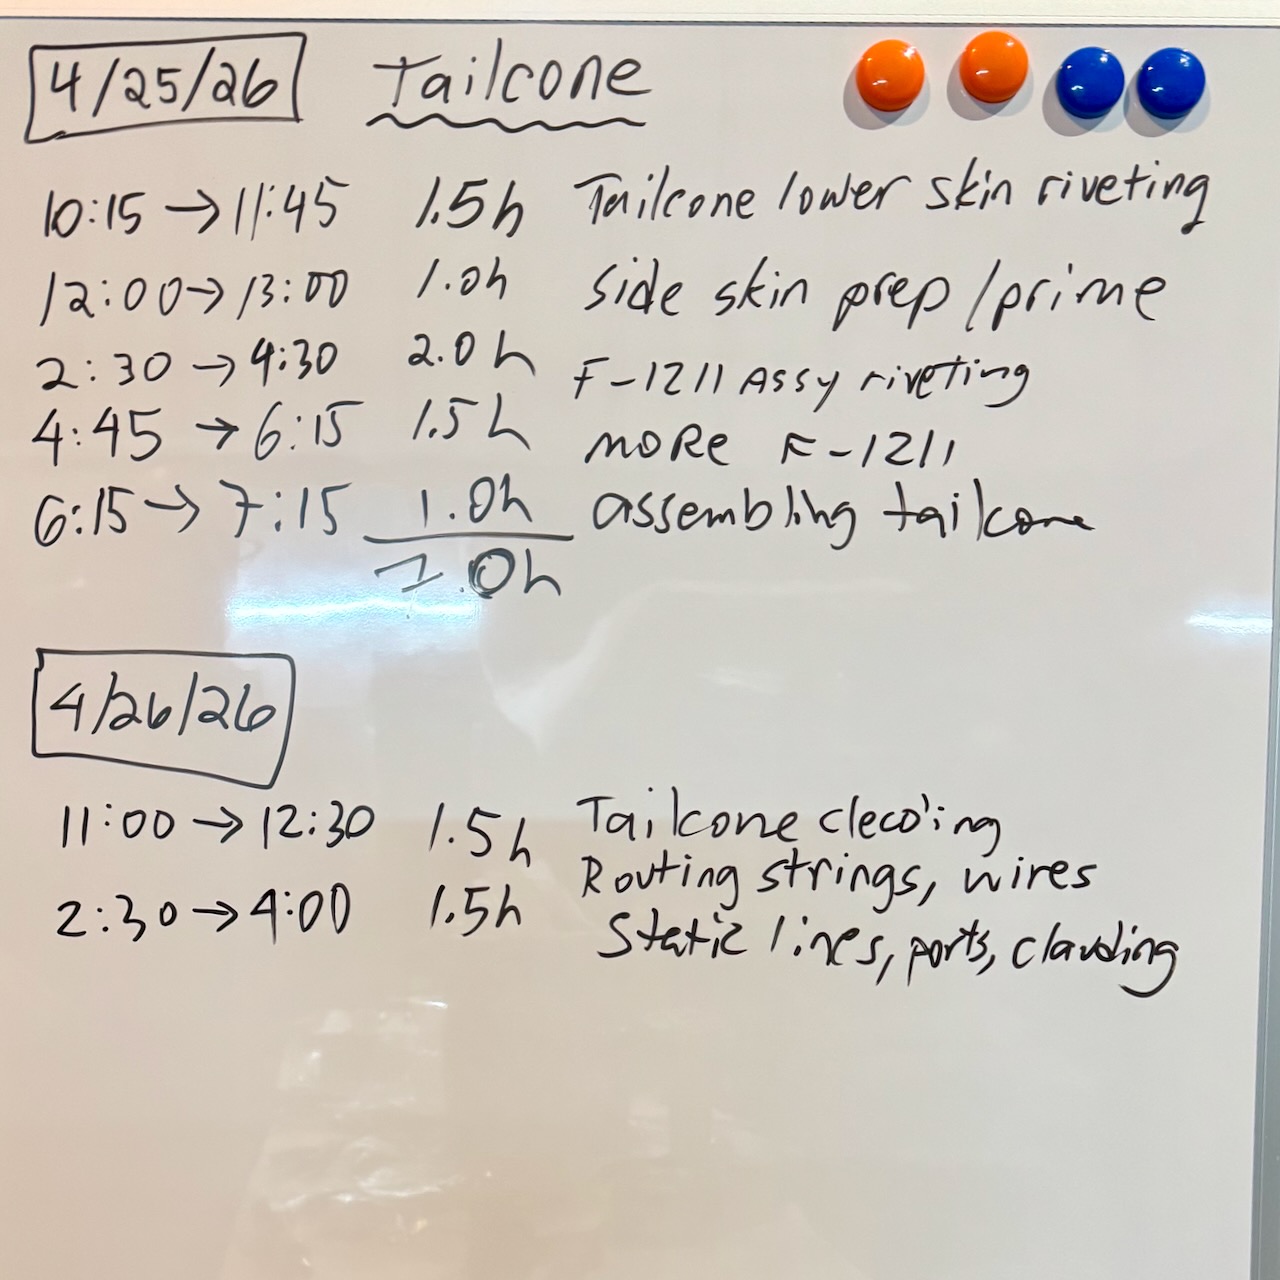 4/25/26 Tailcone
10:15 → 11:45 1.5h Tailcone lower skin riveting
12:00 → 13:00 1.0h side skin prep/prime
2:30 → 4:30 2.0h F-1211 Assy riveting
4:45 → 6:15 1.5h more F-1211
6:15 → 7:15 1.0h assembling tailcone
7.0h
4/26/26
11:00 → 12:30 1.5h Tailcone cleco'ing
Routing strings, wires
2:30 → 4:00 1.5h Static lines, ports,